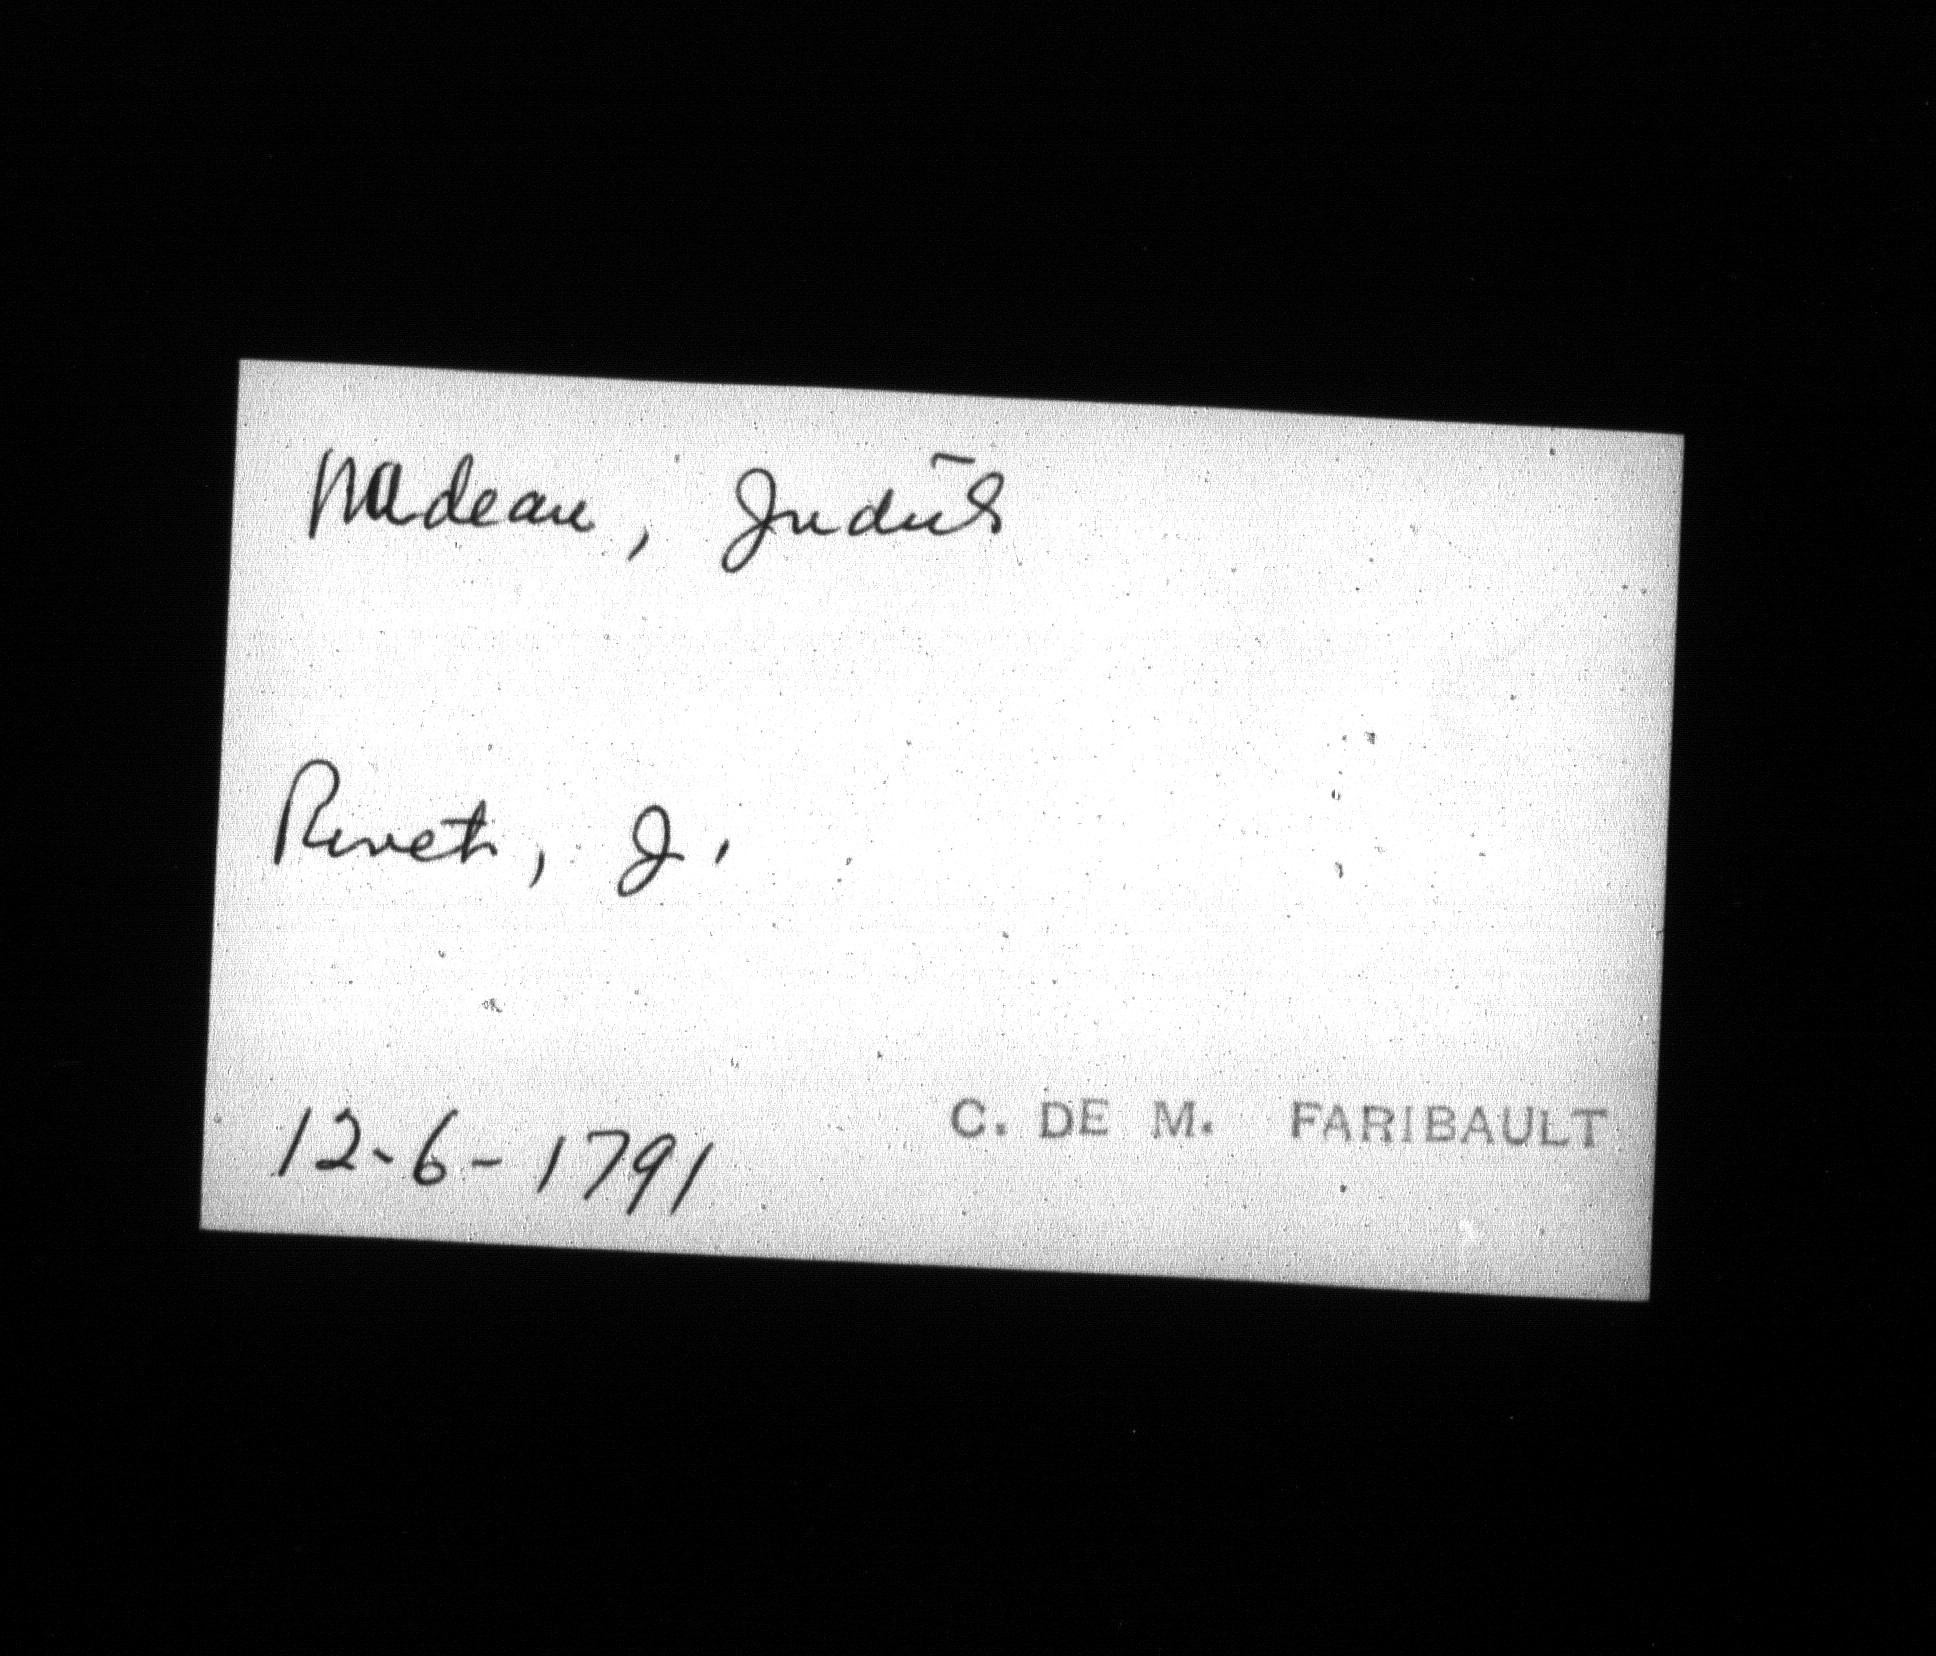 Nadeau, Judith
Rivet, J.
12-6-1791
C. DE M. FARIBAULT